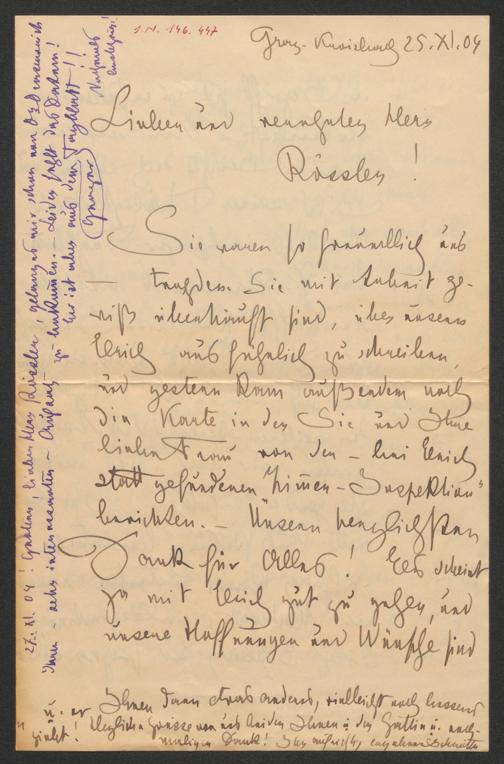 I.N. 146.447
Graz-Kroisbach 25.XI.04
Lieber und verehrter Herr
Rössler!
Sie waren so freundlich uns
— trotzdem Sie mit Arbeit ge-
wiß überhäuft sind, über unseren
Erich ausführlich zu schreiben,
und gestern kam außerdem noch
die Karte in der Sie und Ihre
liebe Frau von der – bei Erich
stattgefundenen „Zimmer-Inspektion"
berichten. – Unseren herzlichsten
Dank für Alles! Es scheint
ja mit Erich gut zu gehen, und
unsere Hoffnungen und Wünsche sind
u. er Ihnen dann etwas anderes, vielleicht noch besseres
giebt! Herzliche Grüsse von uns beiden Ihnen u. der Gattin u. noch-
maligen Dank! Ihr
27. XI. 04! Lieber Herr Rössler, gelang es mir schon von
Ihren – sehr interessanten – zu bekommen. – Leider fehlt das Datum!
hier ist aber aus dem Tagblatt!!